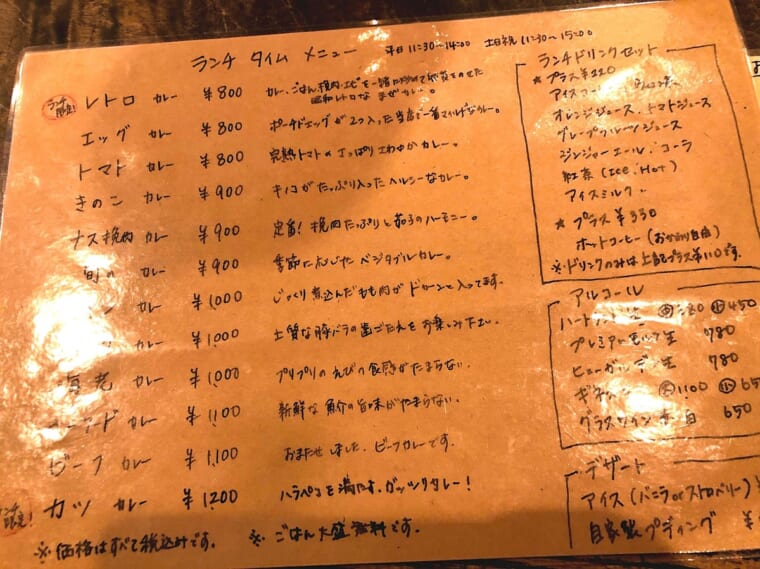 ランチ タイム メニュー 平日 11:30~14:00 土日祝 11:30~15:00
ランチ限定! レトロ カレー ¥800 カレー、ごはん、挽肉、エビを一緒に
昭和レトロな まぜカレー。
エッグ カレー ¥800 ポーチドエッグが2つ入った当店で一番マイルドなカレー。
トマト カレー ¥800 完熟トマトのさっぱりさわやかカレー。
きのこ カレー ¥900 キノコがたっぷり入ったヘルシーなカレー。
ナス挽肉 カレー ¥900 定番!挽肉たっぷりと茄子のハーモニー。
旬の カレー ¥900 季節に応じたベジタブルカレー。
カレー ¥1,000 じっくり煮込んだもも肉がドーンと入ってます。
カレー ¥1,000 上質な豚バラの歯ごたえをお楽しみ下さい。
海老 カレー ¥1,000 プリプリのえびの食感がたまらない。
カレー ¥1,100 新鮮な魚介の旨味がたまらない。
ビーフ カレー ¥1,100 おまたせしました、ビーフカレーです。
カツ カレー ¥1,200 ハラペコを満たす、ガッツリカレー!
※価格はすべて税込みです。 ※ごはん大盛無料です。
ランチドリンクセット
★プラス¥220
オレンジジュース、トマトジュース
グレープフルーツジュース
ジンジャーエール、コーラ
紅茶(Ice・Hot)
アイスミルク
★プラス¥330
ホットコーヒー(おかわり自由)
※ドリンクのみは上記プラス¥110です。
アルコール
ハートランド生 450
プレミアムモルツ生 780
ヒューガルデン生 780
ギネス 1100
グラスワイン 赤 白 650
デザート
アイス(バニラorストロベリー)
自家製プディング ¥